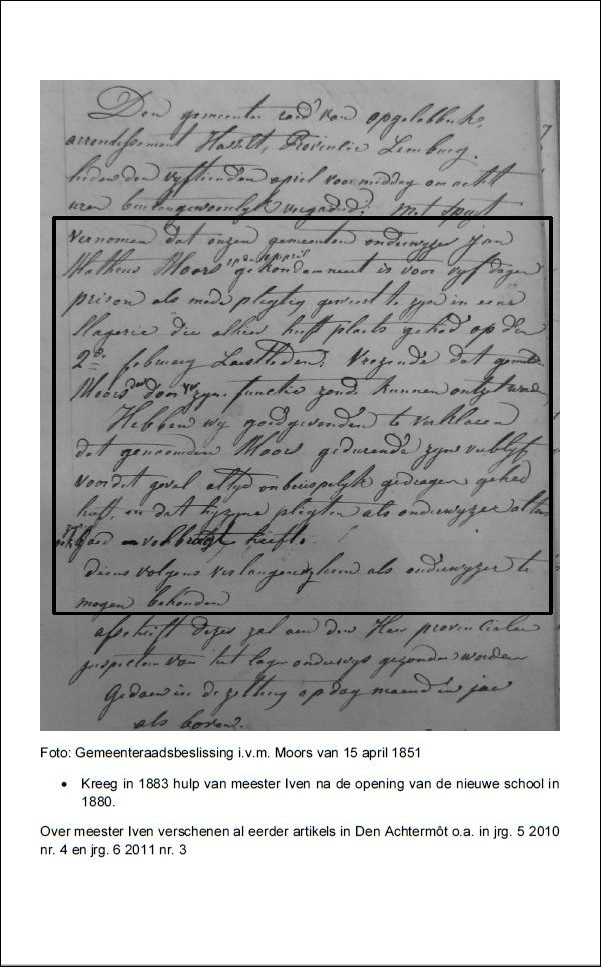 Den gemeenten raad van opgelabbeek,
arrondissement Hasselt, Provintie Lemburg.
heden den vyftienden april voormiddag om acht
uren buitengewoonlyk vergaderd. Met spyt
vernomen dat onzen gemeenten onderwyzer jan
Matheus Moors gekondamneert is voor vyf dagen
prison als mede pligtig geweest te zyn in eene
slagerie die alhier heeft plaets gehad op den
2den february Laestleden. Vrezende dat gemelde
Moors daer door van zyne functie zoude kunnen ontzet worden
Hebben wy goedgevonden te verklaren
dat genoemden Moors gedurende zyne verblyf
voor dit geval altyd onberispelyk gedragen gehad
heeft, en dat hy zyne pligten als onderwyzer altoos
goed volbragt heeft.
diens volgens verlangen wy hem als onderwyzer te
mogen behouden
afschrift dezes zal aen den Heer provintialen
inspecteur van het lager onderwys gezonden worden
Gedaen in de zetting op dag maend en jaer
als boven.
Foto: Gemeenteraadsbeslissing i.v.m. Moors van 15 april 1851
• Kreeg in 1883 hulp van meester Iven na de opening van de nieuwe school in
1880.
Over meester Iven verschenen al eerder artikels in Den Achtermôt o.a. in jrg. 5 2010
nr. 4 en jrg. 6 2011 nr. 3